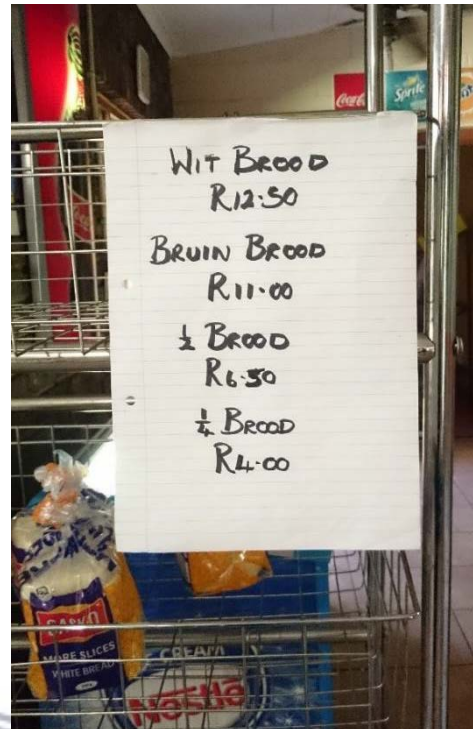 Coca-Cola
Sprite
WIT BROOD
R12.50
BRUIN BROOD
R11.00
½ BROOD
R6.50
¼ BROOD
R4.00
MORE SLICES
WHITE BREAD
CREAM
Nestlé